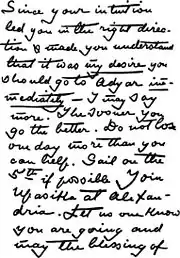 Since your intuition
led you in the right direc-
tion & made you understand
that it was my desire you
should go to Adyar im-
mediately — I may say
more. The sooner you
go the better. Do not lose
one day more than you
can help. Sail on the
5th if possible. Join
Upasika at Alexan-
dria. Let no one know
you are going and
may the blessing of